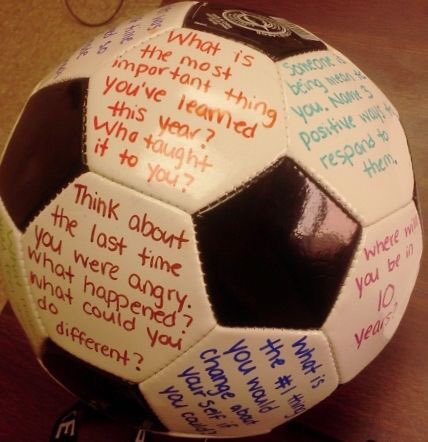 What is
the most
important thing
you've learned
this year?
Who taught
it to you?
Someone is
being mean to
you. Name 3
positive ways to
respond to
them.
Think about
the last time
you were angry.
What happened?
What could you
do
different?
Where will
you be in
10
years?
What is
the #1 thing
you would
change about
your self if
you could?